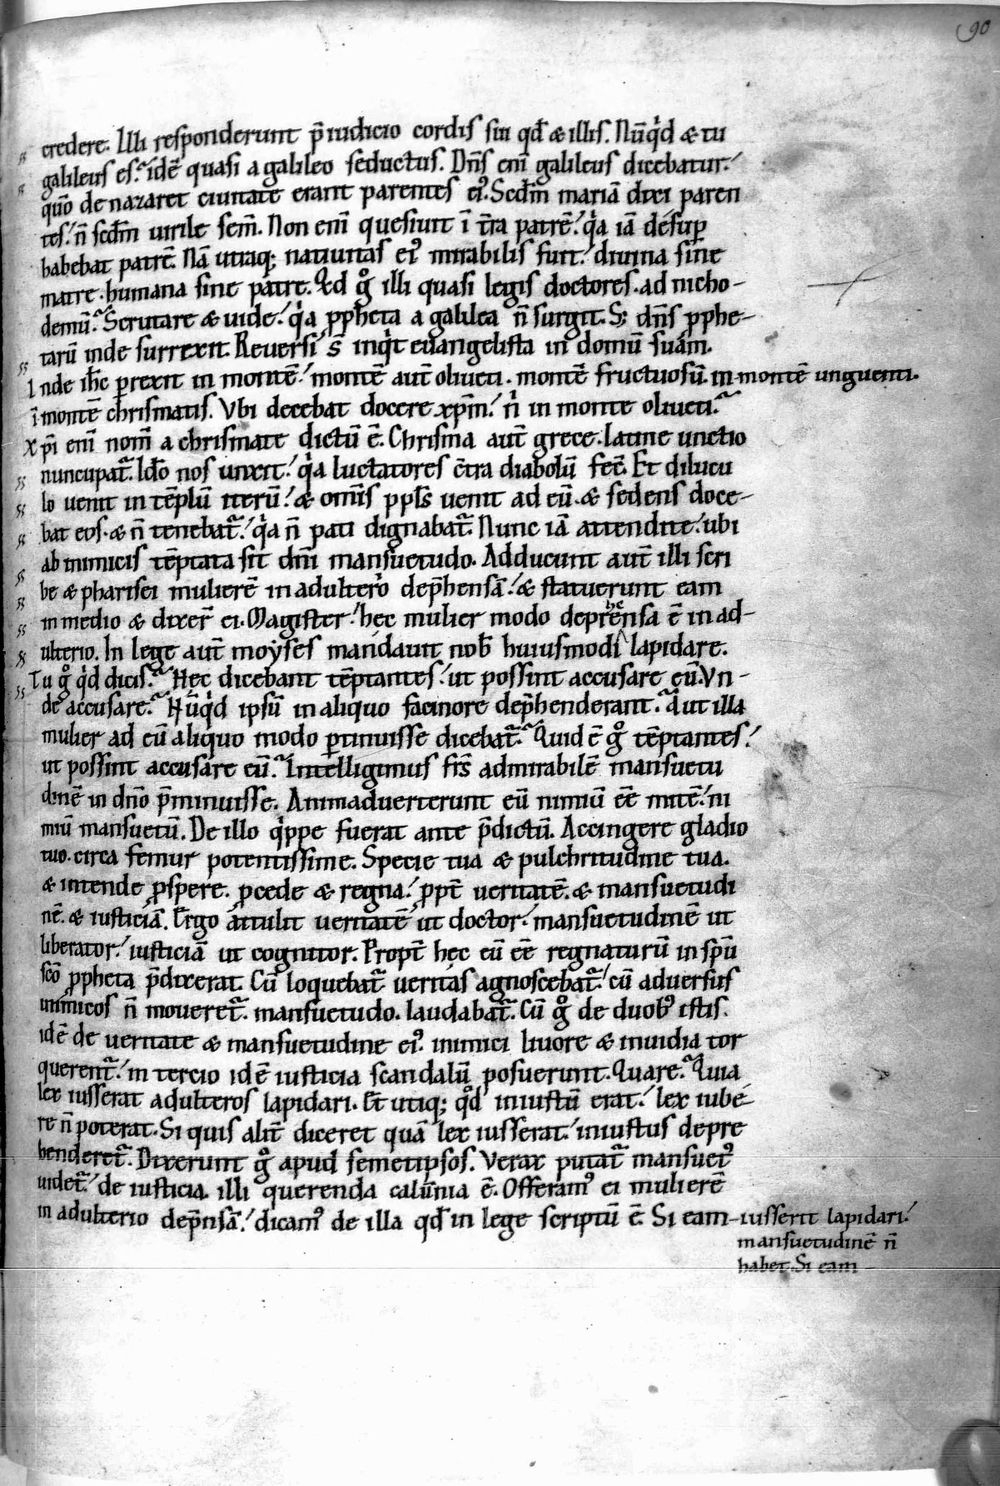 90
credere. Illi responderunt p̄ iudicio cordis sui qđ & illis. Nūq̍d & tu
galileus es? idē quasi a galileo seductus. Dn̄s eni galileus dicebatur.
quō de nazaret ciuitate erant parentes ei᷒. Scđm mariā dixi paren
tes. n̄ scđm uirile sem̄. Non eni quesiuit ī t̄ra patrē. q̍a iā desup
habebat patrē. Nā utraq; natiuitas ei᷒ mirabilis fuit. diuina sine
matre. humana sine patre. Qd g̊ illi quasi legis doctores. ad nicho-
demū. Scrutare & uide. q̍a ꝓpheta a galilea n̄ surgit. S; dn̄s ꝓphe-
tarū inde surrexit. Reuersi s̄ inq̍t euangelista in domū suam.
Inde ih̄c ꝑrexit in montē. montē aut̄ oliueti. montē fructuosū. in montē unguenti.
ī montē chrismatis. Vbi decebat docere xp̄m. n̍ in monte oliueti.
Xp̄i eni nom̄ a chrismate dictū ē. Chrisma aut̄ grece. latine unctio
nuncupat̄. Ido nos unxit. q̍a luctatores c̄tra diabolū fec̄. Et dilucu
lo uenit in tēplū iterū. & om̄is pp̄ls uenit ad eū. & sedens doce-
bat eos. & n̄ tenebat̄. q̍a n̄ pati dignabat̄. Nunc iā attendite. ubi
ab inimicis tēptata sit dn̄i mansuetudo. Adducunt aut̄ illi scri
be & pharisei mulierē in adulterio dep̄hensā. & statuerunt eam
in medio & dixer̄ ei. Magister. hec mulier modo deprehensa ē in ad-
ulterio. In lege aut̄ moyses mandauit nob̄ huiusmodi lapidare.
Tu g̊ q̍d dicis. Hec dicebant tēptantes. ut possint accusare eū. Vn-
de accusare. Nūq̍d ipsū in aliquo facinore dep̄henderant. Aut illa
mulier ad eū aliquo modo ꝑtinuisse dicebat̄. Quid ē g̊ tēptantes.
ut possint accusare eū. Intelligimus fr̄s admirabilē mansuetu
dinē in dn̄o p̄minuisse. Animaduerterunt eū nimiū eē mitē. ni
miū mansuetū. De illo q̍ppe fuerat ante p̄dictū. Accingere gladio
tuo. circa femur potentissime. Specie tua & pulchritudine tua.
& intende ꝓspere. ꝓcede & regna. ꝓpt̄ ueritatē. & mansuetudi
nē. & iusticiā. Ergo attulit ueritatē ut doctor. mansuetudinē ut
liberator. iusticiā ut cognitor. Propt̄ hec eū eē regnaturū in sp̄u
sc̄o ꝓpheta p̄dixerat. Cū loquebat̄ ueritas agnoscebat̄. cū aduersus
inimicos n̄ moueret̄. mansuetudo. laudabat̄. Cū g̊ de duob᷒ istis.
idē de ueritate & mansuetudine ei᷒. inimici liuore & inuidia tor
querent̄. in tercio idē iusticia scandalū posuerunt. Quare. Quia
lex iusserat adulteros lapidari. Et utiq; qđ iniustū erat. lex iube
re n̄ poterat. Si quis alit̄ diceret quā lex iusserat. iniustus depre
henderet̄. Dixerunt g̊ apud semetipsos. Verax putat̄ mansuet᷒
uidet̄. de iusticia. illi querenda calūnia ē. Offeram᷒ ei mulierē
in adulterio dep̄nsā. dicam᷒ de illa qđ in lege scriptū ē. Si eam iusserit lapidari.
mansuetudinē n̄
habet. Si eam